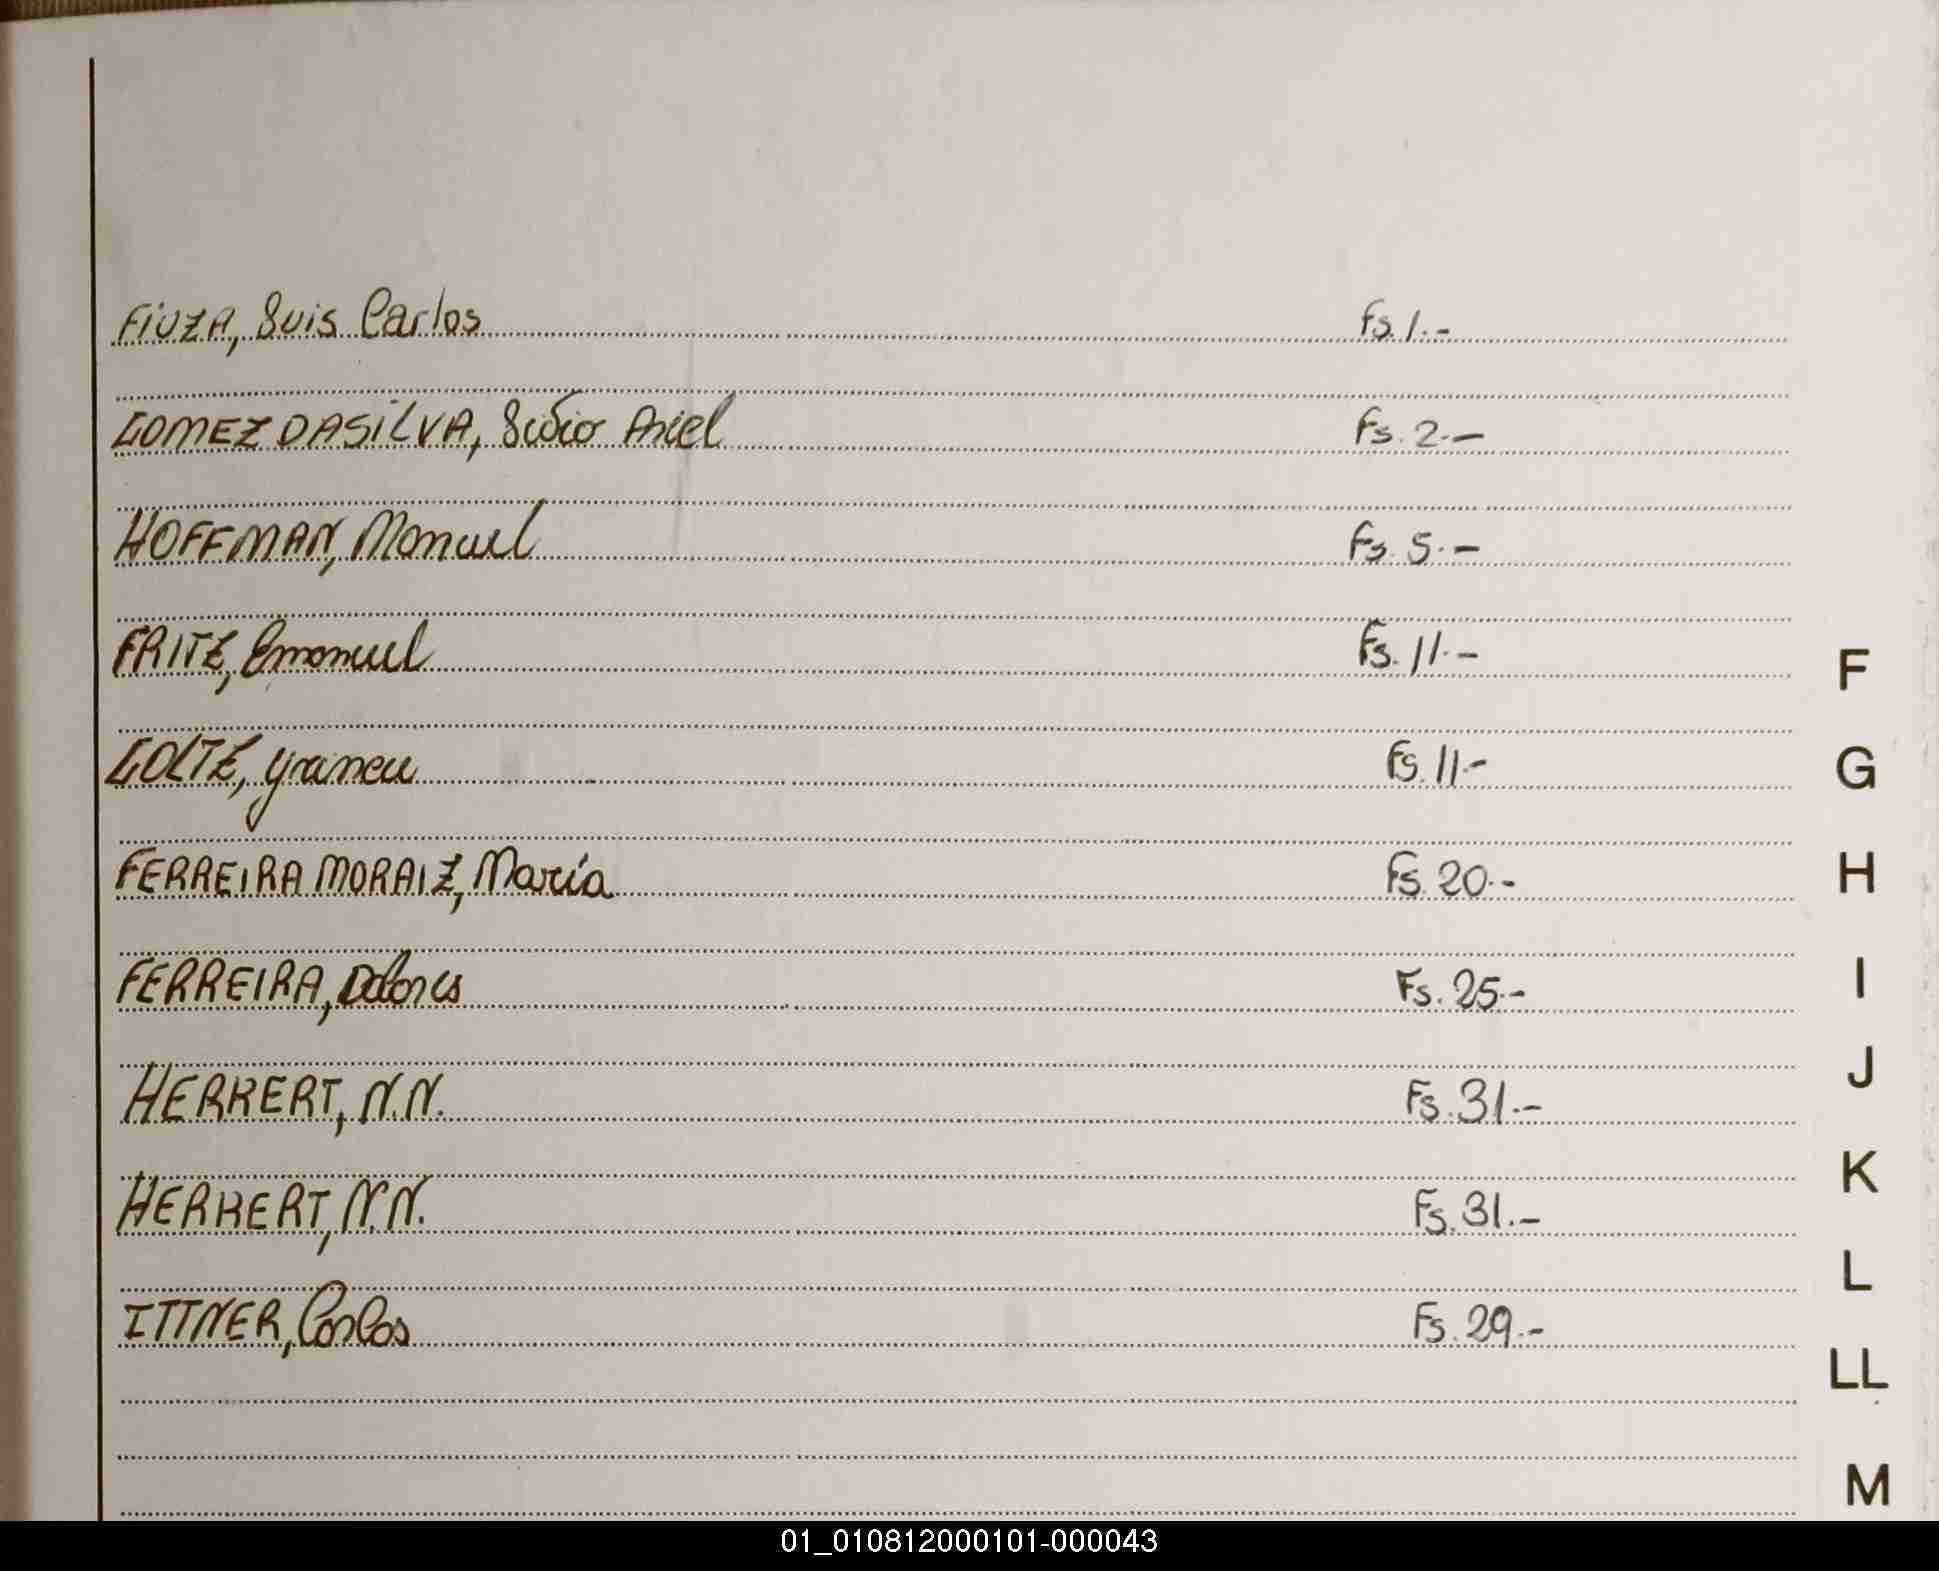 FIUZA, Luis Carlos Fs. 1.-
GOMEZ DASILVA, Lidio Ariel Fs. 2.-
HOFFMAN, Manuel Fs. 5.-
FRITZ, Emanuel Fs. 11.-
F
GOLTZ, Fs. 11.-
G
FERREIRA MORAIZ, María Fs. 20.-
H
FERREIRA, Dolores Fs. 25.-
I
J
HERKERT, N.N. Fs. 31.-
K
HERKERT, N.N. Fs. 31.-
L
ITTNER, Carlos Fs. 29.-
LL
M
01_010812000101-000043